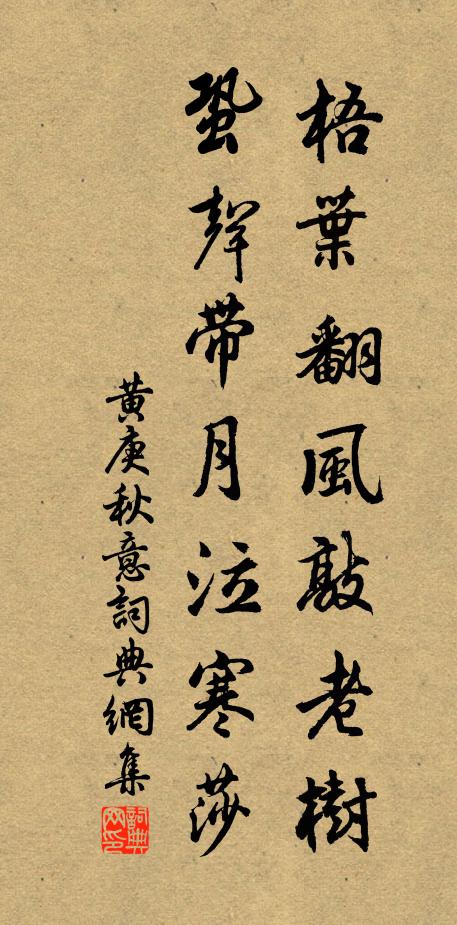 梧葉翻風敲老樹
蛩聲帶月泣寒莎
黄庚秋意詞典網集
詞典网印